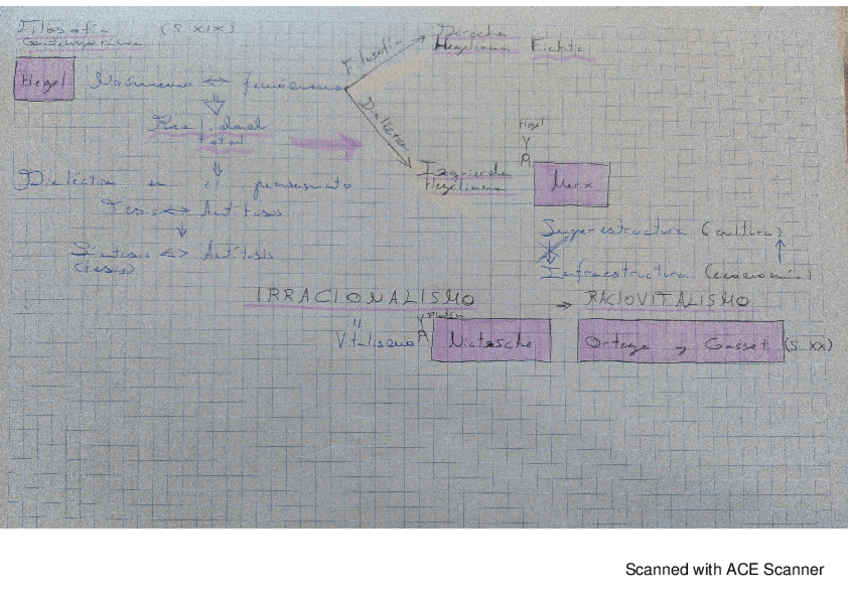 Filosofía (S. XIX)
Contemporánea
Hegel Noúmeno ↔ fenómeno
Filosofía
Derecha
Hegeliana Fichte
Realidad
total
Dialéctica
Hegel
Izquierda
Hegeliana Marx
Dialéctica en el pensamiento
Tesis ↔ Antítesis
Síntesis ↔ Antítesis
(Tesis)
Superestructura (cultura)
Infraestructura (economía)
IRRACIONALISMO → RACIOVITALISMO
Platón
Vitalismo Nietzsche Ortega y Gasset (S XX)
Scanned with ACE Scanner